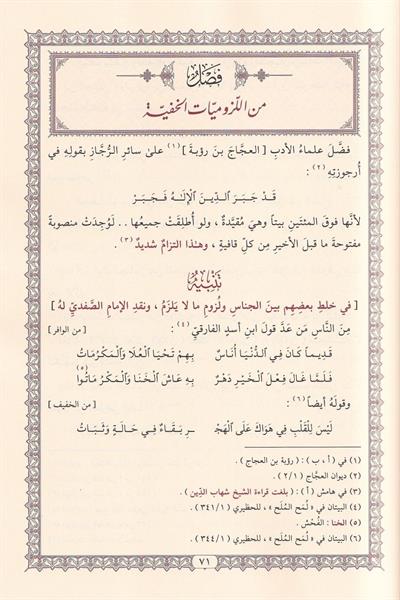 فَصْلٌ
من اللّزوميّات الخفيّة
فضَّلَ علماءُ الأدبِ [العجَّاجَ بنَ رؤبةَ] (١) على سائرِ الرُّجَّازِ بقولِهِ في
أُرجوزتِهِ (٢) :
قَدْ جَبَرَ الدِّينَ الْإِلٰهُ فَجَبَرْ
لأنَّها فوقَ المئتَينِ بيتاً وهيَ مُقيَّدةٌ، ولو أُطلِقَتْ جميعُها .. لَوُجِدَتْ منصوبةً
مفتوحةَ ما قبلَ الأخيرِ مِن كلِّ قافيةٍ، وهـٰذا التزامٌ شديدٌ (٣) .
تَنْبِيْهٌ
[في خلطِ بعضِهِم بينَ الجناسِ ولُزومِ ما لا يَلزَمُ، ونقدِ الإمامِ الصَّفديِّ لهُ]
مِنَ النَّاسِ مَن عَدَّ قولَ ابنِ أسدٍ الفارقيِّ (٤) : [من الوافر]
قَدِيماً كَانَ فِي الدُّنْيَا أُنَاسٌ بِهِمْ تَحْيَا الْعُلَا وَالْمَكْرُمَاتُ
فَلَمَّا غَالَ فِعْلَ الْخَيْرِ دَهْرٌ بِهِ عَاشَ الْخَنَا وَالْمَكْرُ مَاتُوا (٥)
وقولَهُ أيضاً (٦) : [من الخفيف]
لَيْسَ لِلْقَلْبِ فِي هَوَاكَ عَلَى الْهَجْـ ـرِ بَقَاءٌ فِي حَالَةٍ وَثَبَاتُ
(١) في (أ، ب) : (رؤبة بن العجاج) .
(٢) ديوان العجَّاج (٢/١) .
(٣) في هامش (أ) : (بلغت قراءة الشيخ شهاب الدِّين) .
(٤) البيتان في «لُمَح المُلَح» للحظيري (٣٤١/١) .
(٥) الخنا : الفُحْش .
(٦) البيتان في «لُمَح المُلَح» للحظيري (٣٤٤/١) .
٧١